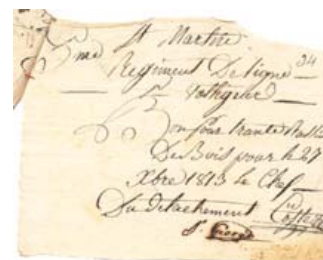 St Martin
5me Regiment De ligne 34
Voltigeur
Bon pour trante
De Bois pour le 27
Xbre 1813 Le Chef
Du detachement
St George